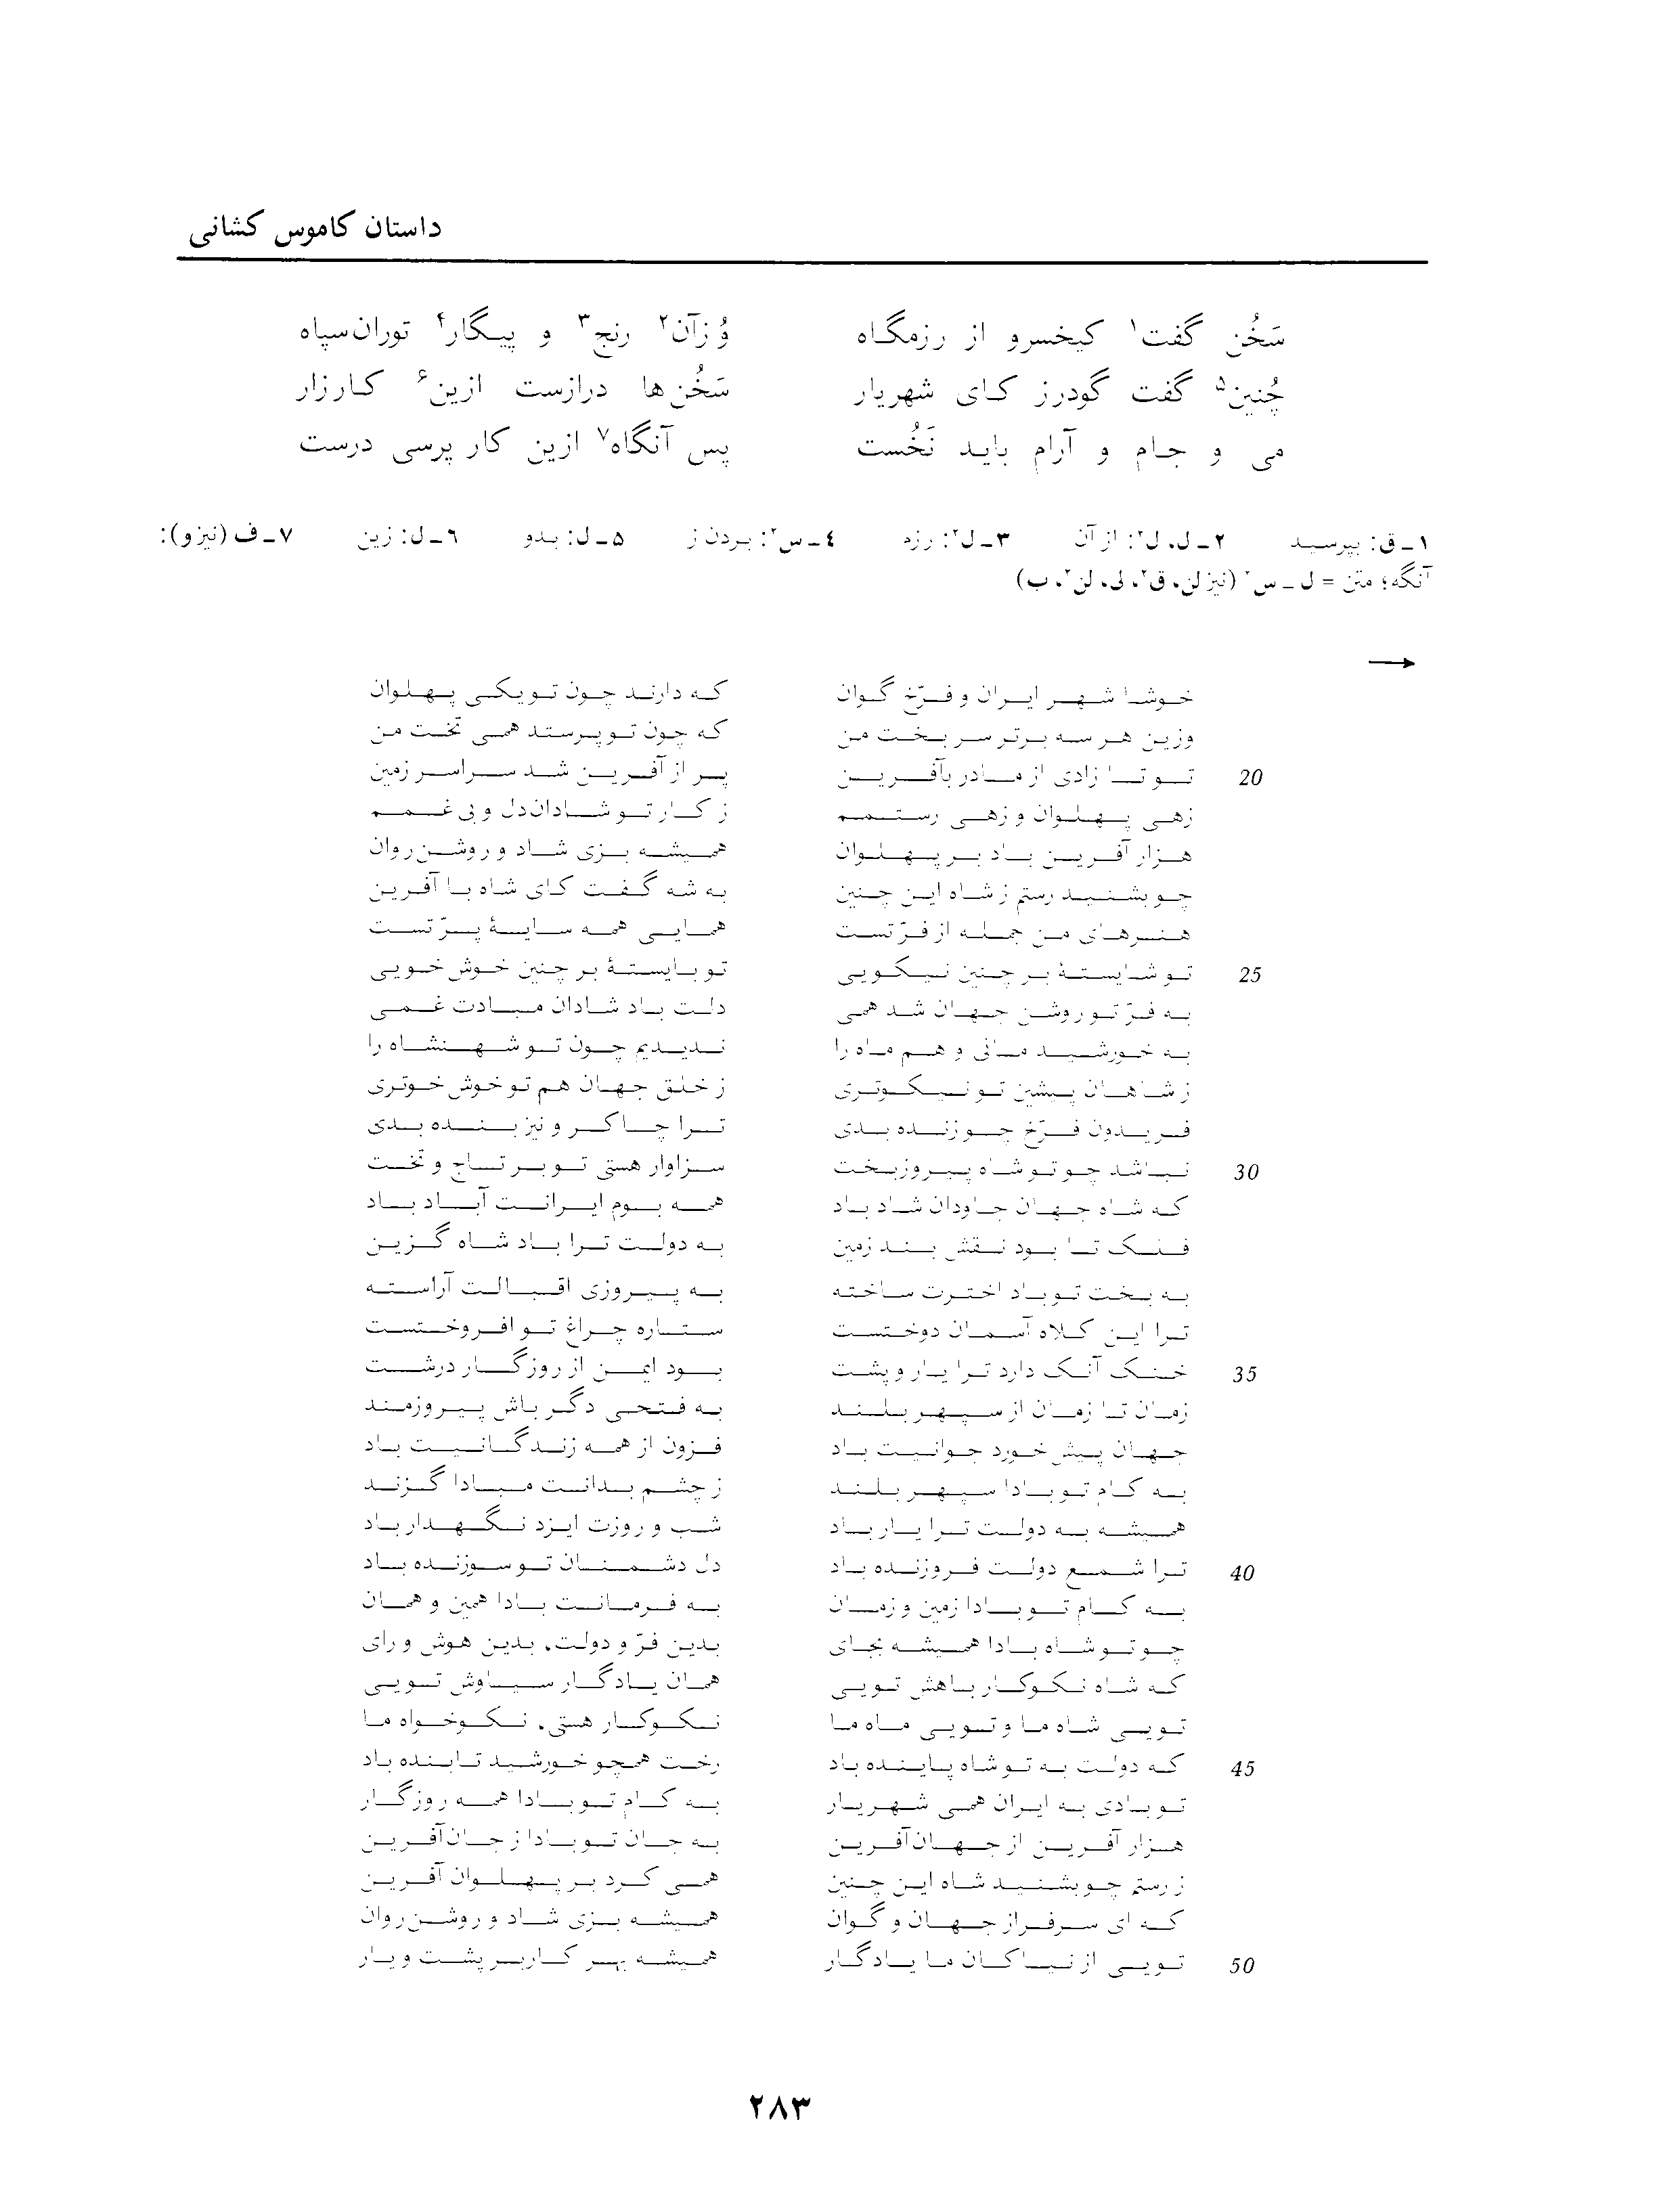 داستان کاموس کشانی
سَخُن گفت۱ کیخسرو از رزمگاه وُ زآن۲ رنج۳ و پیگار۴ توران‌سپاه
چُنین۵ گفت گودرز کای شهریار سَخُن‌ها درازست ازین۶ کارزار
می و جام و آرام باید نَخُست پس آنگاه۷ ازین کار پرسی درست
۱ـ ق: بپرسید ۲ـ ل، ل۲: از آن ۳ـ ل۲: رزم ۴ـ س۲: بردن ز ۵ـ ل: بدو ۶ـ ل: زین ۷ـ ف (نیز و):
آنگه؛ متن = ل ـ س۲ (نیز لن، ق۲، لی، لن۲، ب)
→
خوشا شهر ایران و فرّخ گوان که دارند چون تو یکی پهلوان
وزین هر سه برتر سر بخت من که چون تو پرستد همی تخت من
20 تو تا زادی از مادر بآفرین پر از آفرین شد سراسر زمین
زهی پهلوان و زهی رستمم ز کار تو شادان‌دل و بی غمم
هزار آفرین باد بر پهلوان همیشه بزی شاد و روشن‌روان
چو بشنید رستم ز شاه این چنین به شه گفت کای شاه با آفرین
هنرهای من جمله از فرّ تست همایی همه سایهٔ پرّ تست
25 تو شایستهٔ بر چنین نیکویی تو بایستهٔ بر چنین خوش خویی
به فرّ تو روشن جهان شد همی دلت باد شادان مبادت غمی
به خورشید مانی و هم ماه را ندیدیم چون تو شهنشاه را
ز شاهان پیشین تو نیکوتری ز خلق جهان هم تو خوش خوتری
فریدون فرّخ چو زنده بدی ترا چاکر و نیز بنده بدی
30 نباشد چو تو شاه پیروزبخت سزاوار هستی تو بر تاج و تخت
که شاه جهان جاودان شاد باد همه بوم ایرانت آباد باد
فلک تا بود نقش بند زمین به دولت ترا باد شاه گزین
به بخت تو باد اخترت ساخته به پیروزی اقبالت آراسته
ترا این کلاه آسمان دوختست ستاره چراغ تو افروختست
35 خنک آنک دارد ترا یار و پشت بود ایمن از روزگار درشت
زمان تا زمان از سپهر بلند به فتحی دگر باش پیروزمند
جهان پیش خورد جوانیت باد فزون از همه زندگانیت باد
به کام تو بادا سپهر بلند ز چشم بدانت مبادا گزند
همیشه به دولت ترا یار باد شب و روزت ایزد نگهدار باد
40 ترا شمع دولت فروزنده باد دل دشمنان تو سوزنده باد
به کام تو بادا زمین و زمان به فرمانت بادا همین و همان
چو تو شاه بادا همیشه بجای بدین فرّ و دولت، بدین هوش و رای
که شاه نکوکار باهش تویی همان یادگار سیاوش تویی
تویی شاه ما و تویی ماه ما نکوکار هستی، نکوخواه ما
45 که دولت به تو شاه پاینده باد رخت همچو خورشید تابنده باد
تو بادی به ایران همی شهریار به کام تو بادا همه روزگار
هزار آفرین از جهان‌آفرین به جان تو بادا ز جان‌آفرین
ز رستم چو بشنید شاه این چنین همی کرد بر پهلوان آفرین
که ای سرفراز جهان و گوان همیشه بزی شاد و روشن‌روان
50 تویی از نیاکان ما یادگار همیشه بهر کار بر پشت و یار
۲۸۳